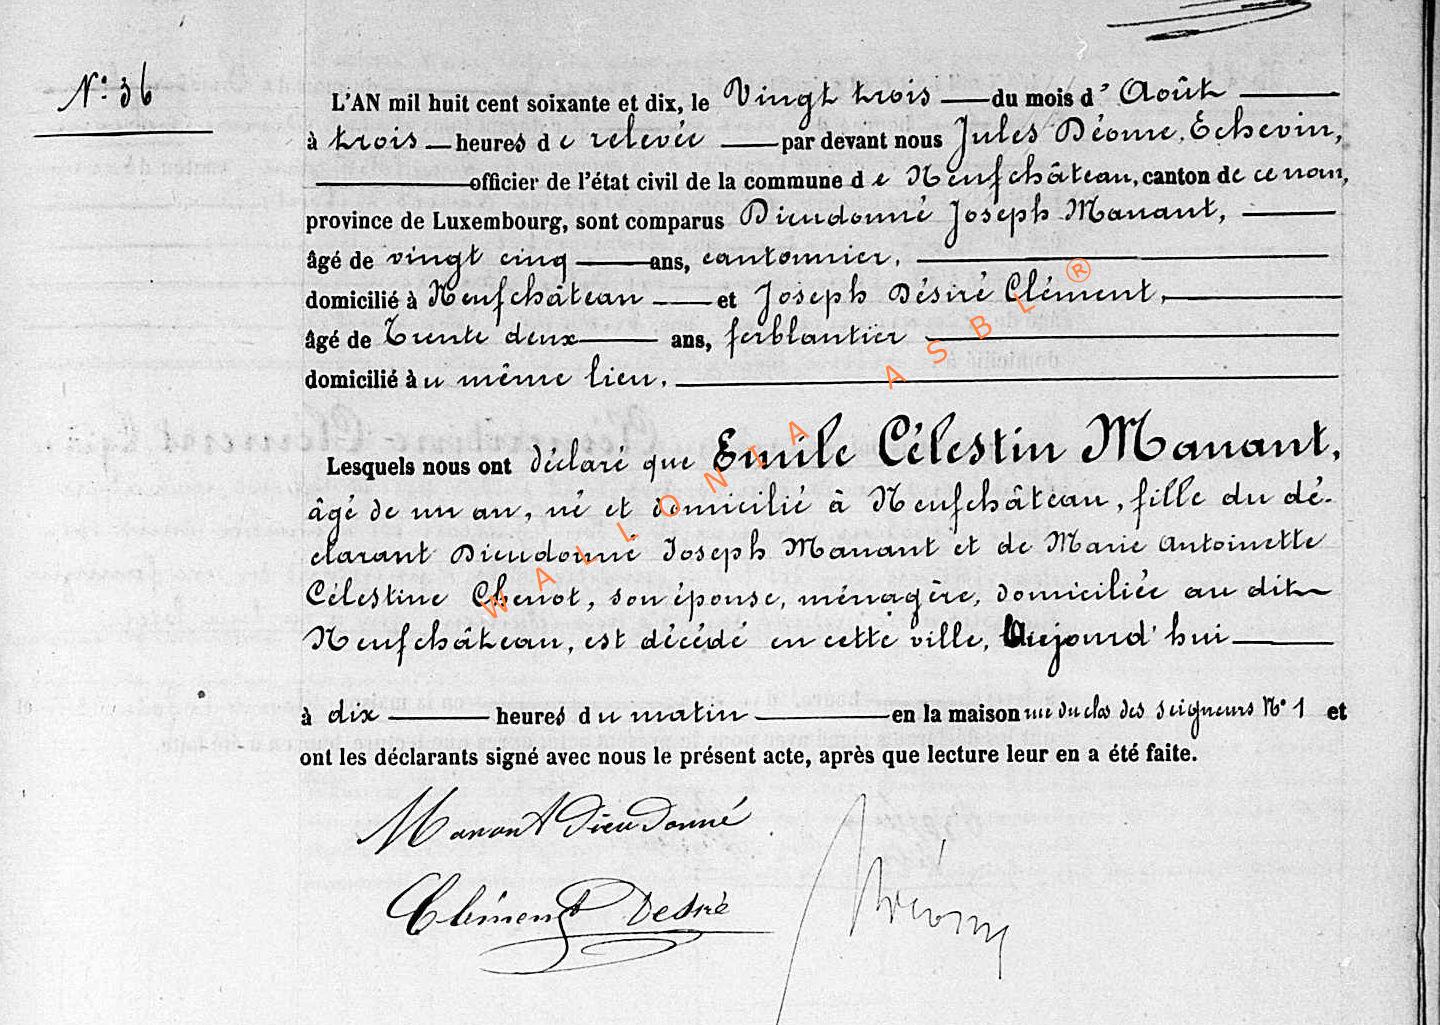 N° 36
L'AN mil huit cent soixante et dix, le Vingt trois du mois d'Août
à trois heures de relevée par devant nous Jules Déome, Echevin,
officier de l'état civil de la commune de Neufchâteau, canton de ce nom,
province de Luxembourg, sont comparus Dieudonné Joseph Manant,
âgé de vingt cinq ans, cantonnier,
domicilié à Neufchâteau et Joseph Désiré Clément,
âgé de Trente deux ans, ferblantier
domicilié au même lieu.
Lesquels nous ont déclaré que Emile Célestin Manant,
âgé de un an, né et domicilié à Neufchâteau, fille du dé-
clarant Dieudonné Joseph Manant et de Marie Antoinette
Célestine Chenot, son épouse, ménagère, domiciliée au dit
Neufchâteau, est décédé en cette ville, Aujourd'hui
à dix heures du matin en la maison rue du clos des seigneurs N° 1 et
ont les déclarants signé avec nous le présent acte, après que lecture leur en a été faite.
Manant Dieudonné
Clément Desiré
WALLONIA ASBL ®